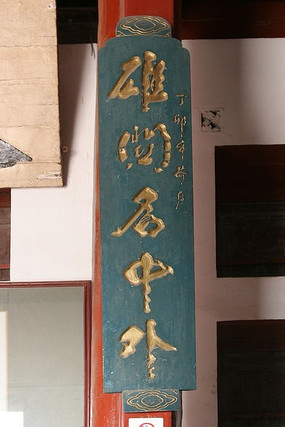 丁卯年月
雄關名中外